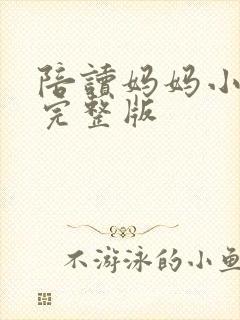 陪讀妈妈小
完整版
不游泳的小鱼